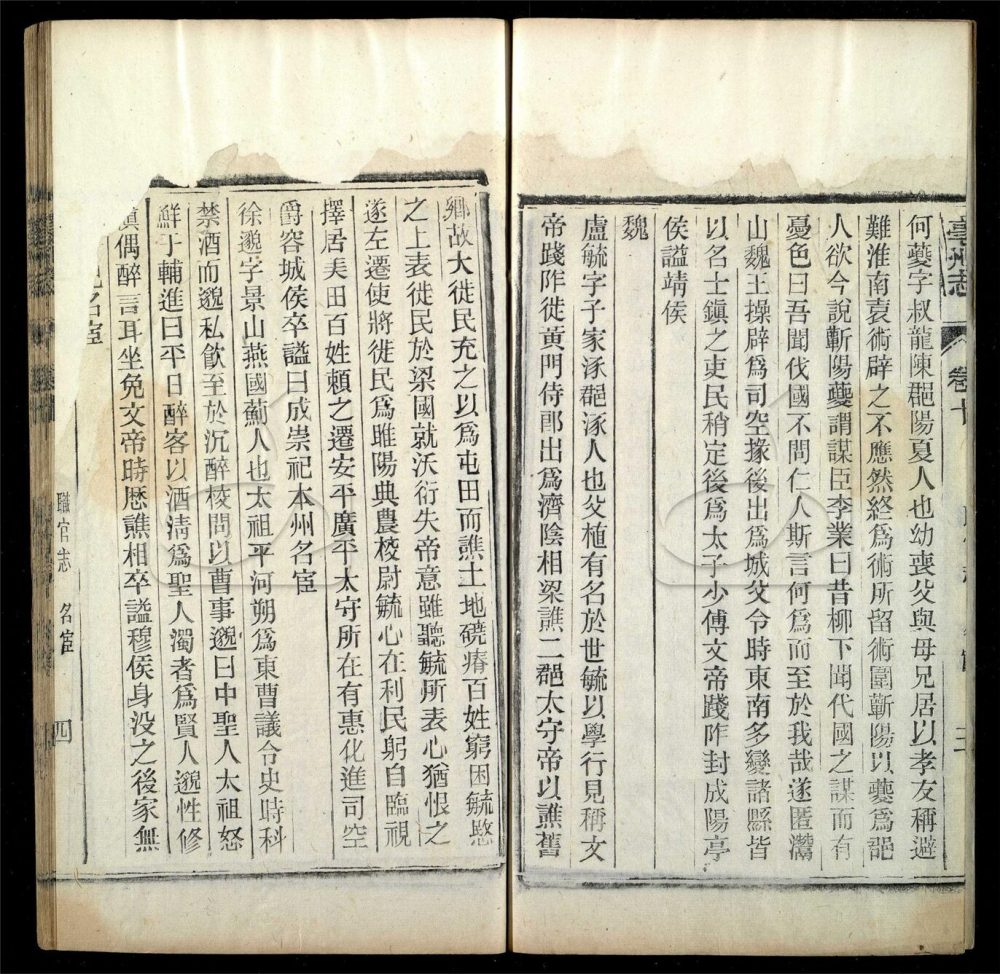 亳州志
卷十
三
何夔字叔龍陳郡陽夏人也幼喪父與母兄居以孝友稱避
難淮南袁術辟之不應然終為術所留術圍蘄陽以夔為郡
人欲令說蘄陽夔謂謀臣李業曰昔柳下聞伐國之謀而有
憂色曰吾聞伐國不問仁人斯言何為而至於我哉遂匿灊
山魏王操辟為司空掾後出為城父令時東南多變諸縣皆
以名士鎮之吏民稍定後為太子少傅文帝踐阼封成陽亭
侯諡靖侯
魏
盧毓字子家涿郡涿人也父植有名於世毓以學行見稱文
帝踐阼徙黃門侍郎出為濟陰相梁譙二郡太守帝以譙舊
鄉故大徙民充之以為屯田而譙土地磽瘠百姓窮困毓愍
之上表徙民於梁國就沃衍失帝意雖聽毓所表心猶恨之
遂左遷使將徙民為睢陽典農校尉毓心在利民躬自臨視
擇居美田百姓賴之遷安平廣平太守所在有惠化進司空
爵容城侯卒諡曰成崇祀本州名宦
徐邈字景山燕國薊人也太祖平河朔為東曹議令史時科
禁酒而邈私飲至於沉醉校問以曹事邈曰中聖人太祖怒
鮮于輔進曰平日醉客以酒清為聖人濁者為賢人邈性修
慎偶醉言耳坐免文帝時歷譙相卒諡穆侯身没之後家無
名宦
職官志 名宦
四